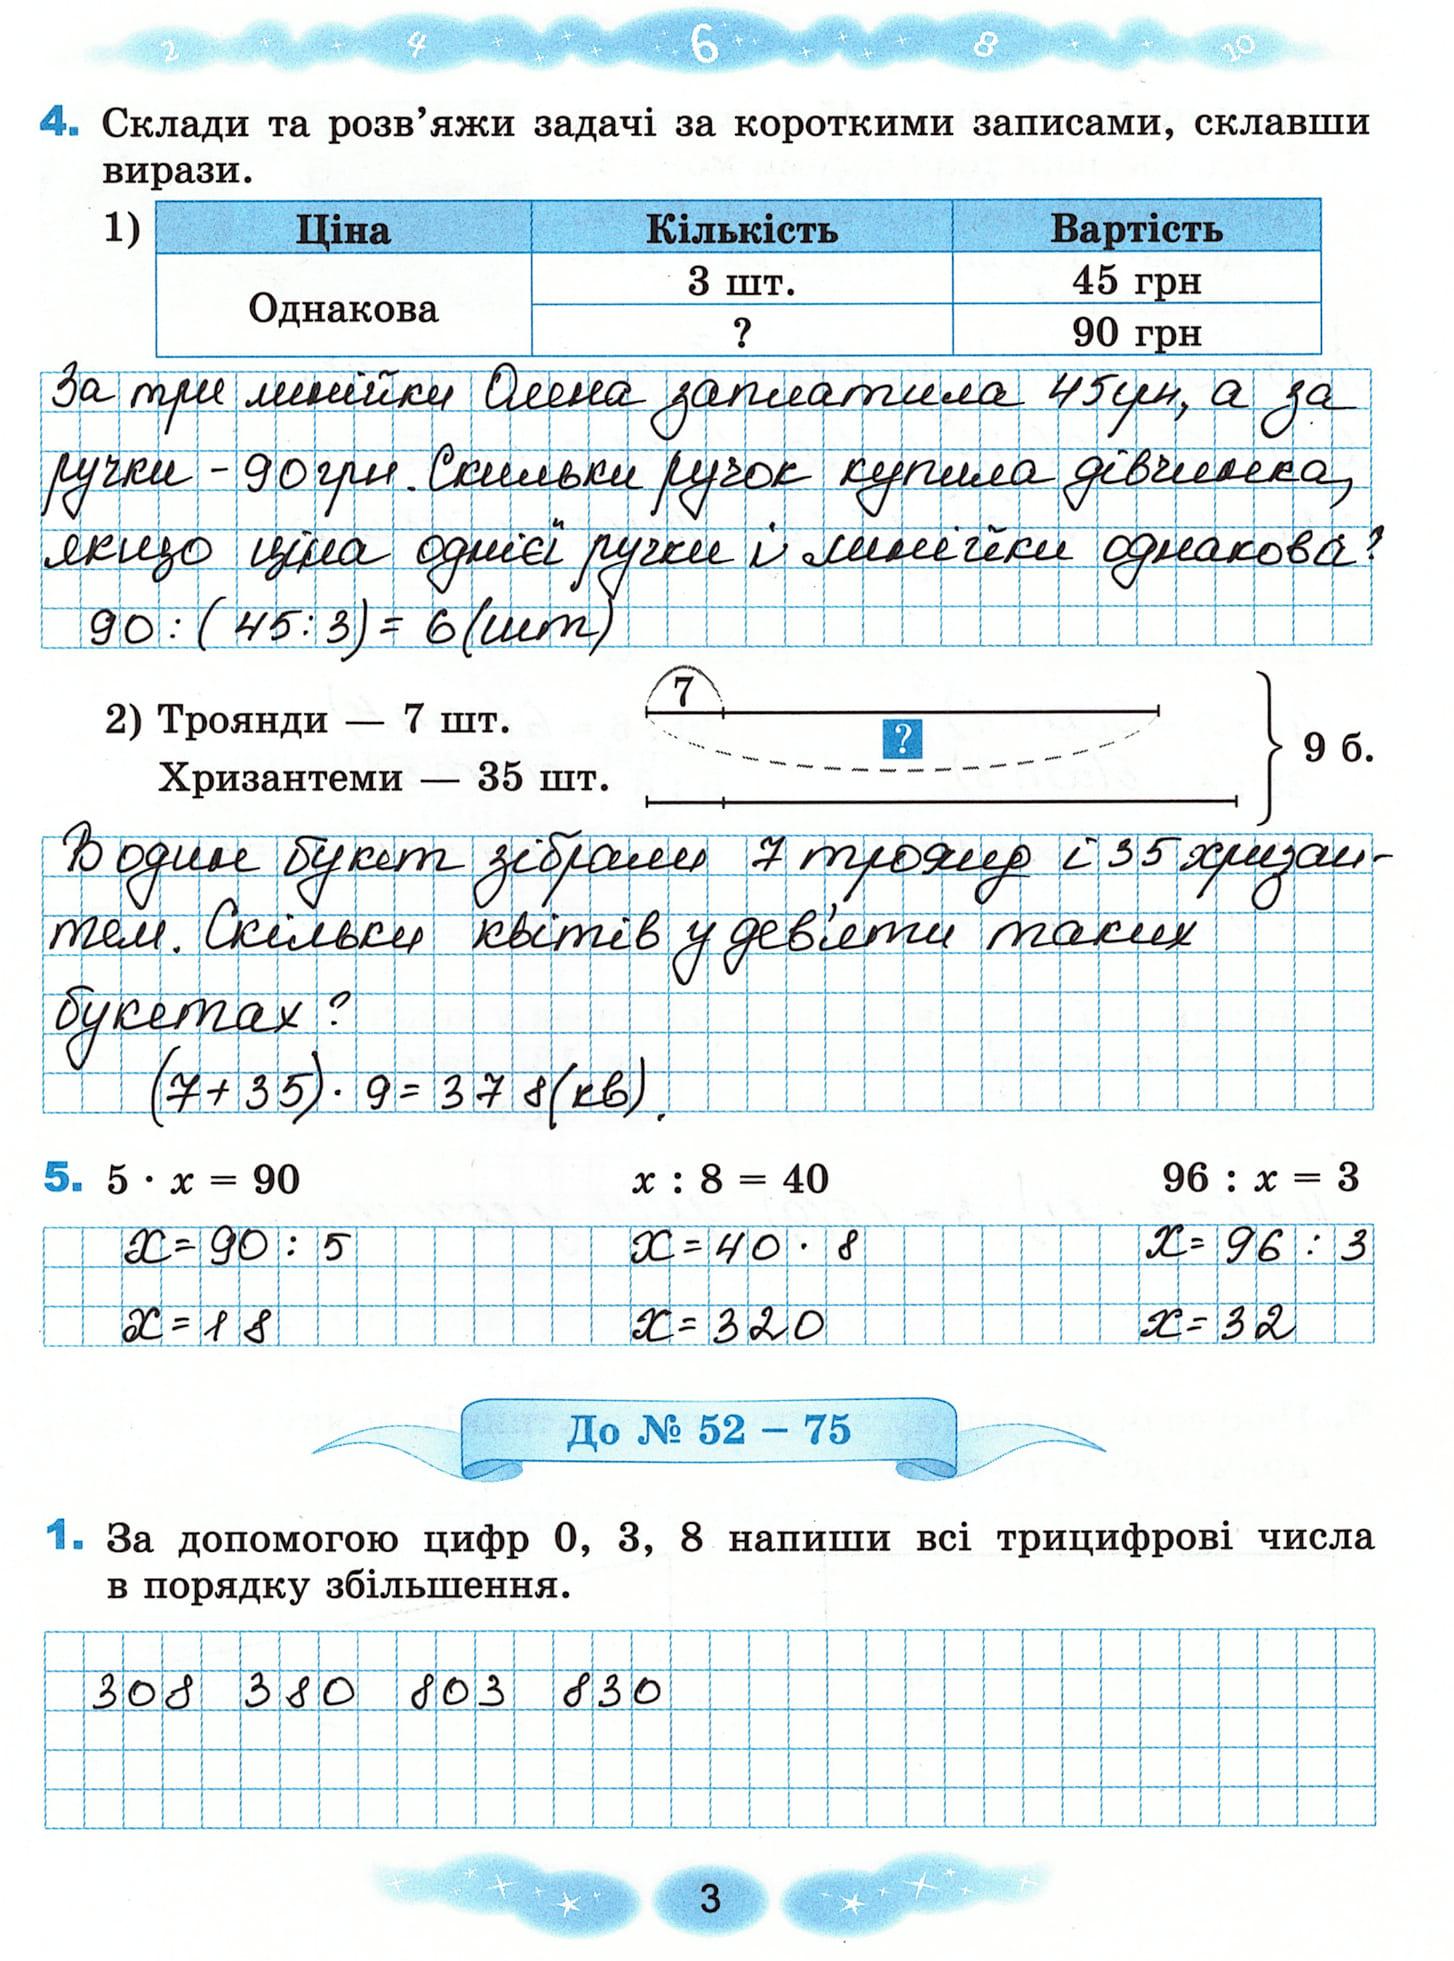 2 4 6 8 10
4. Склади та розв’яжи задачі за короткими записами, склавши
вирази.
1) Ціна Кількість Вартість
Однакова 3 шт. 45 грн
? 90 грн
За три лінійки Олена заплатила 45грн, а за
ручки - 90 грн. Скильки ручок купила дівчинка,
якщо ціна однієї ручки і лінійки однакова?
90 : ( 45 : 3 ) = 6 (шт)
2) Троянди — 7 шт.
Хризантеми — 35 шт.
7
?
9 б.
В один букет зібрали 7 троянд і 35 хризан-
тем. Скільки квітів у дев'яти таких
букетах?
(7 + 35) · 9 = 378 (кв).
5. 5 · x = 90 x : 8 = 40 96 : x = 3
x = 90 : 5 x = 40 · 8 x = 96 : 3
x = 18 x = 320 x = 32
До № 52 – 75
1. За допомогою цифр 0, 3, 8 напиши всі трицифрові числа
в порядку збільшення.
308 380 803 830
3